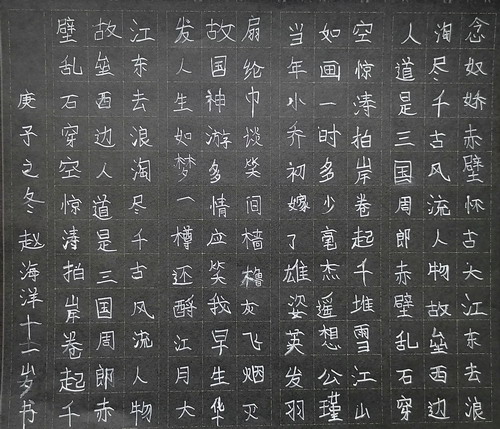 念奴娇赤壁怀古大江东去浪
淘尽千古风流人物故垒西边
人道是三国周郎赤壁乱石穿
空惊涛拍岸卷起千堆雪江山
如画一时多少毫杰遥想公瑾
当年小乔初嫁了雄姿英发羽
扇纶巾谈笑间樯橹灰飞烟灭
故国神游多情应笑我早生华
发人生如梦一樽还酹江月大
江东去浪淘尽千古风流人物
故垒西边人道是三国周郎赤
壁乱石穿空惊涛拍岸卷起千
庚子之冬赵海洋十一岁书